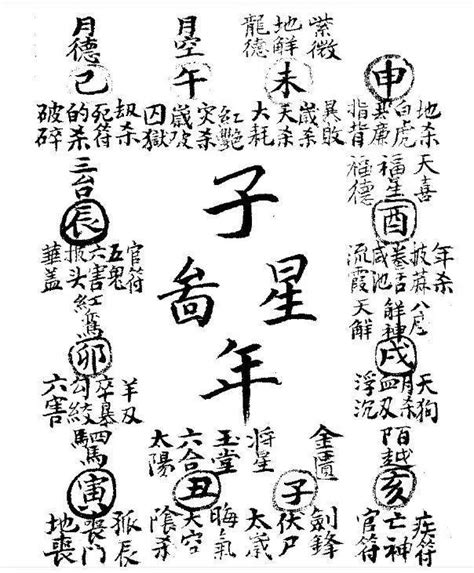 子
星
啚
年
申
地杀
白虎
指背
紫微
地解
龍德
未
暴敗
歲杀
天杀
大耗
月空
午
紅艷
灾杀
歲破
囚獄
月德
巳
劫杀
死符
的杀
破碎
三台
辰
官符
五鬼
六害
披头
華盖
紅鸞
卯
羊刃
卒暴
勾絞
六害
駟馬
寅
孤辰
喪門
地喪
玉堂
六合
太陽
丑
晦氣
天空
陰杀
金匱
將星
子
劍鋒
伏尸
太歲
陌越
亥
疾符
亡神
官符
八座
解神
天解
戌
天狗
月杀
血刃
浮沉
天喜
福星
福德
酉
年杀
披蔴
卷舌
咸池
流霞